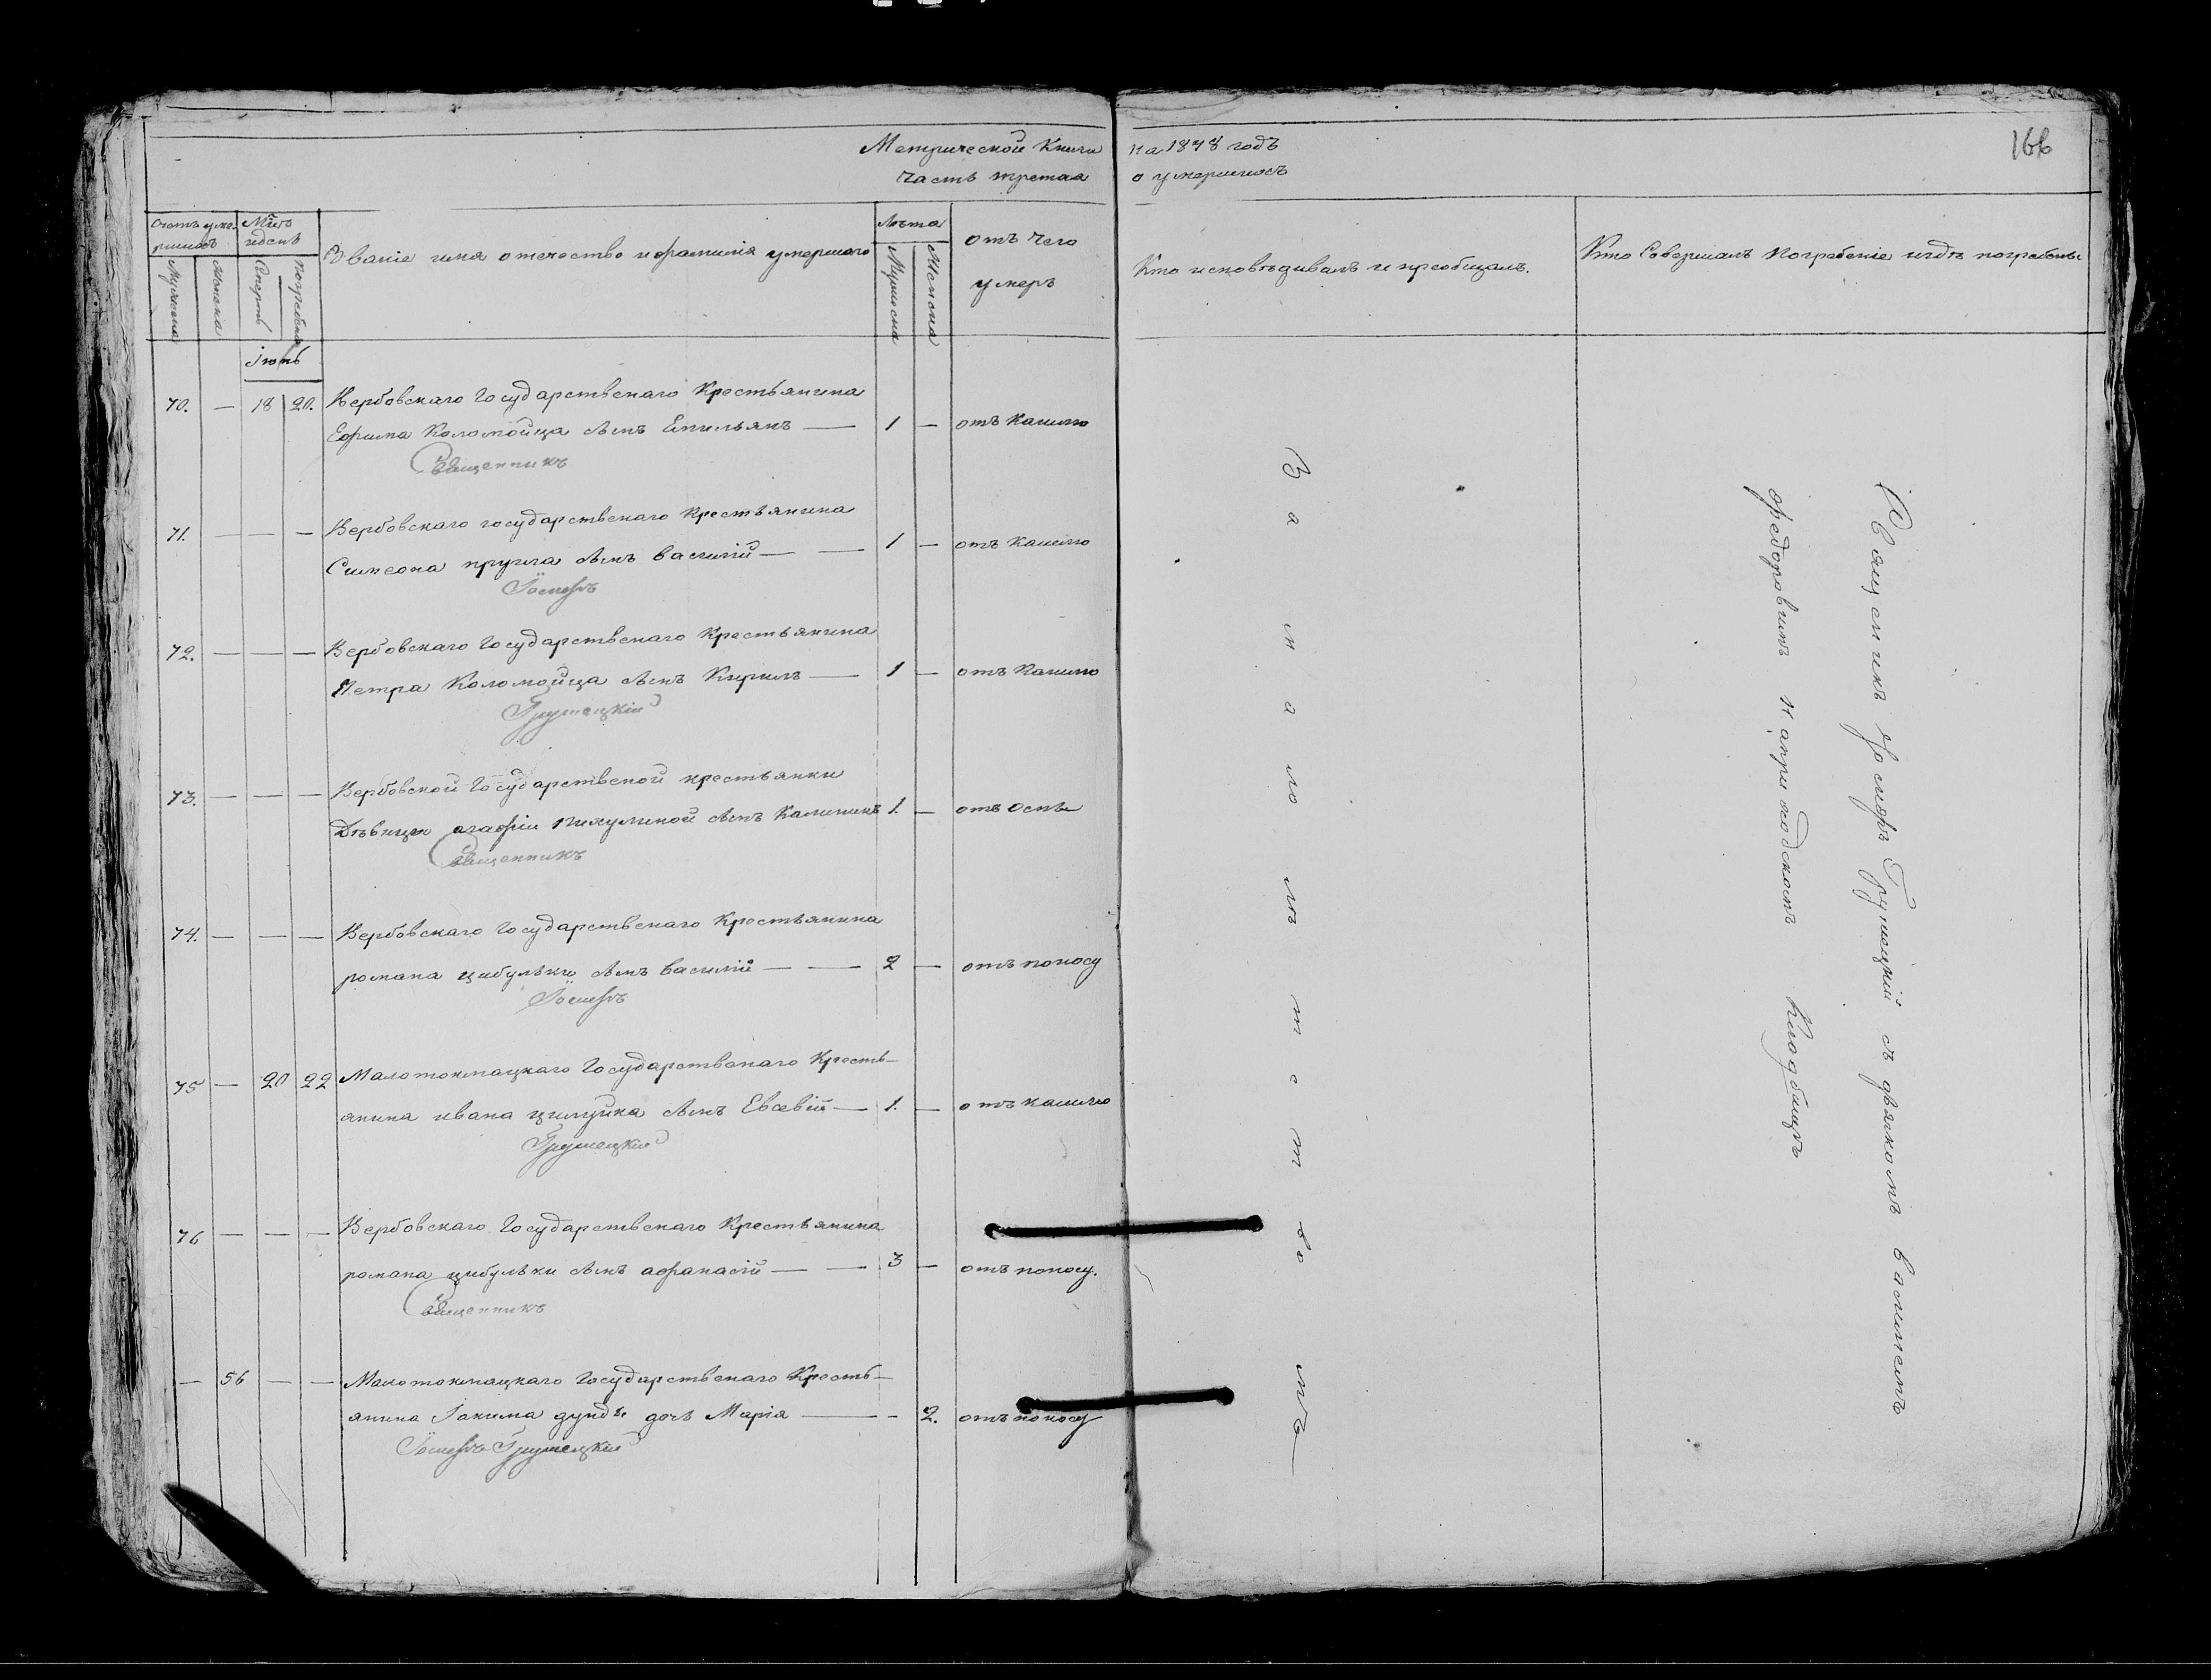 Метрической Книги на 1848 годъ
166
часть третая о умершихъ
Счетъ умершихъ
Мѣсъ и день
Званіе имя отечество и фамилія умершаго
Лѣта
отъ чего
умеръ
Кто исповѣдывалъ и преобщалъ.
Кто Совершалъ Погребеніе и гдѣ погребены
Мужеска
Женска
Смерть
Погребенія
Мужеска
Женска
Іюнь
70. — 18 20. Вербовскаго Государственаго Крестьянина
Ефима Коломойца сынъ Емильянъ — 1 — отъ Кашлю
Священникъ
71. — — — Вербовскаго государственаго Крестьянина
Симеона кругла сынъ василій — — 1 — отъ Кашлю
Іосифъ
72. — — — Вербовскаго Государственаго Крестьянина
Петра Коломойца сынъ Кирилъ — 1 — отъ Кашлю
Грушецкій
73. — — — Вербовской Государственой крестьянки
Дѣвицы агафіи сынъ Калиникъ 1. — отъ Оспы
Священникъ
74. — — — Вербовскаго Государственаго Крестьянина
романа цибульки сынъ василій — — 2 — отъ поносу
Іосифъ
75 — 20 22 Малотокмацкаго Государственаго Кресть-
янина ивана сынъ Евсевій — 1. — отъ кашлю
Грушецкій
76 — — — Вербовскаго Государственаго Крестьянина
романа цибульки сынъ афанасій — — 3 — отъ поносу.
Священникъ
— 56 — — Малотокмацкаго Государственаго Кресть-
янина Іакима дунды дочь Марія — - 2. отъ поносу
Іосифъ Грушецкій
За малолѣтствомъ
Священникъ Іосифъ Грушецкій съ дьячкомъ василіемъ
федоровымъ На приходскомъ Кладбищѣ